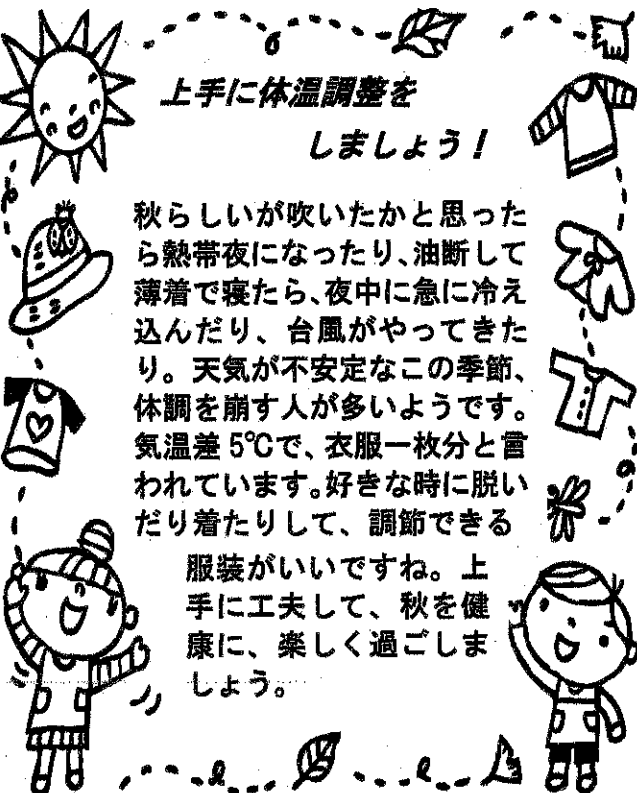 上手に体温調整を
しましょう！
秋らしいが吹いたかと思った
ら熱帯夜になったり、油断して
薄着で寝たら、夜中に急に冷え
込んだり、台風がやってきた
り。天気が不安定なこの季節、
体調を崩す人が多いようです。
気温差5℃で、衣服一枚分と言
われています。好きな時に脱い
だり着たりして、調節できる
服装がいいですね。上
手に工夫して、秋を健
康に、楽しく過ごしま
しょう。